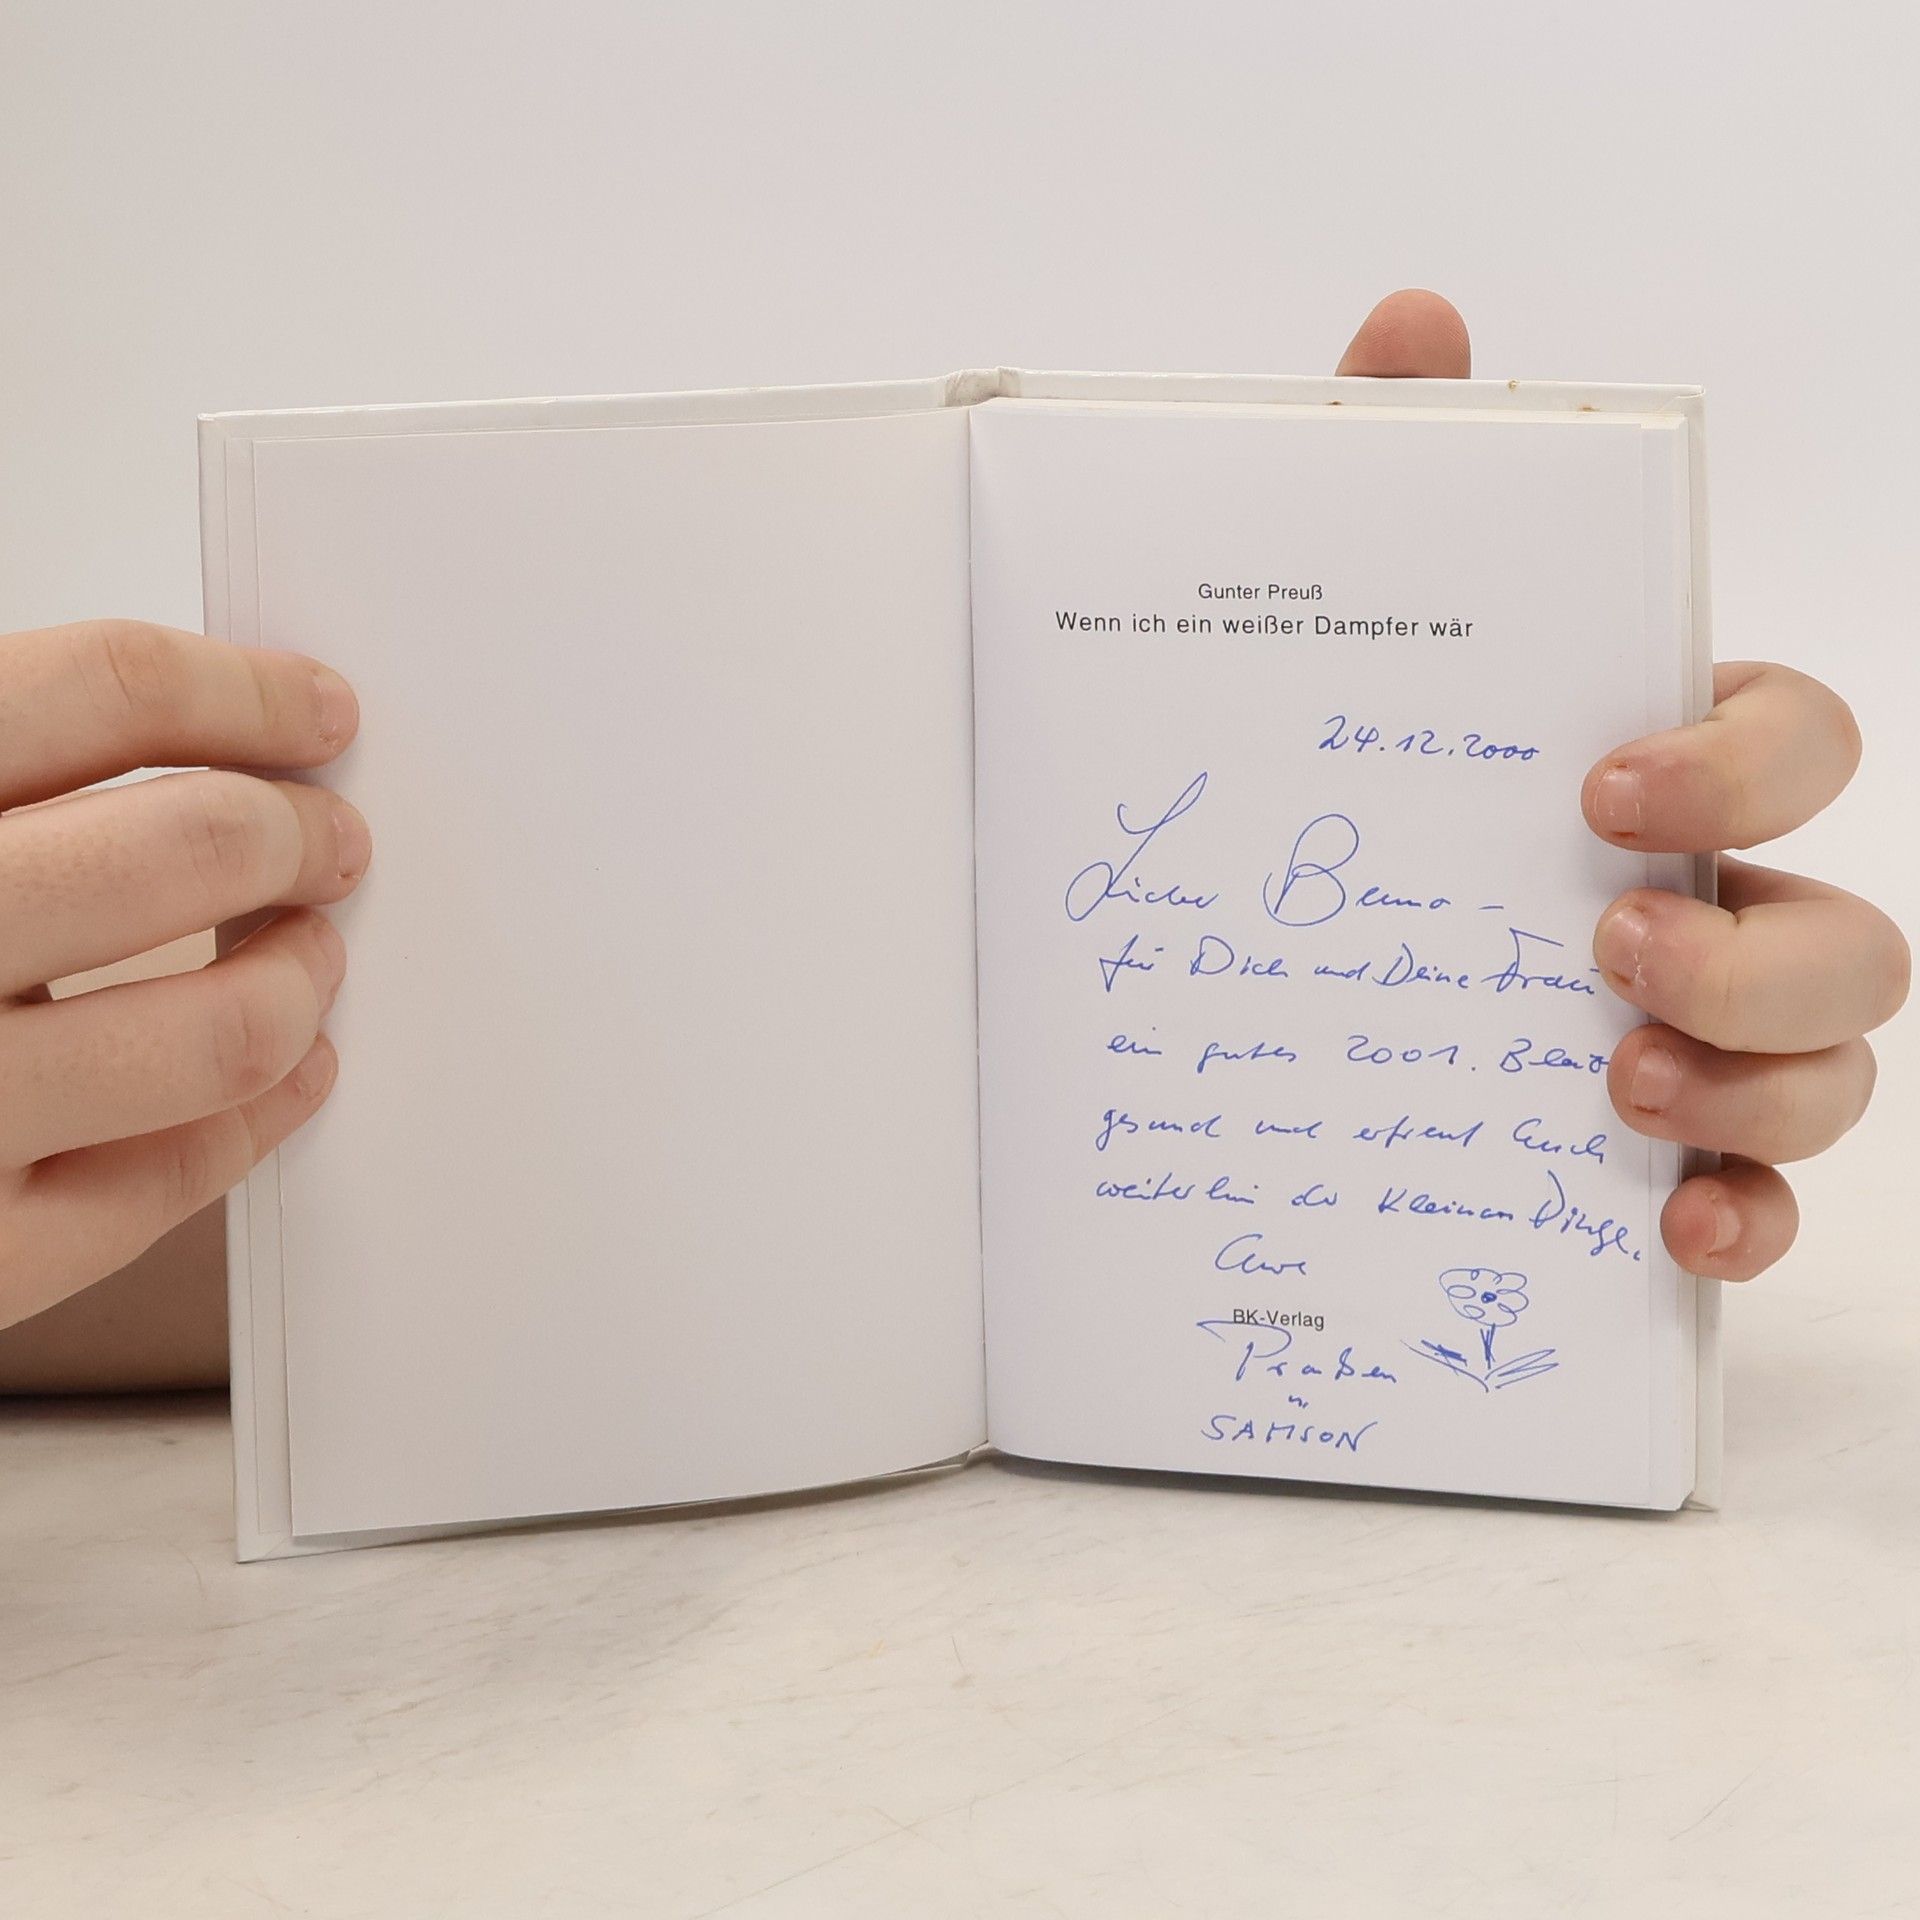 Gunter Preuß
Wenn ich ein weißer Dampfer wär
24.12.2000
Lieber Benno –
für Dich und Deine Frau
ein gutes 2001. Bleibt
gesund und erfreut Euch
weiterhin der kleinen Dinge.
Eure
BK-Verlag
Preußen
u.
SAMSON